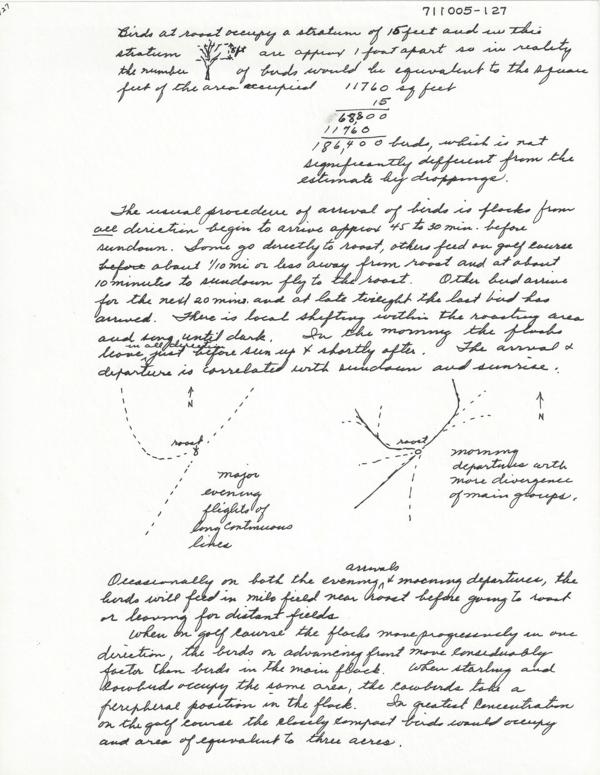 127
711005-127
Birds at roost occupy a stratum of 15 feet and in this
stratum 15ft are approx 1 foot apart so in reality
the number of birds would be equivalent to the square
feet of the area occupied 11760 sq feet
15
68800
11760
186,400 birds, which is not
significantly different from the
estimate by droppings.
The usual procedure of arrival of birds is flocks from
all direction begin to arrive approx 45 to 30 min. before
sundown. Some go directly to roost, others feed on golf course
before about 1/10 mi or less away from roost and at about
10 minutes to sundown fly to the roost. Other bird arrive
for the next 20 mins. and at late twilight the last bird has
arrived. There is local shifting within the roosting area
and song until dark. In the morning the flocks
in all direction
leave just before sun up & shortly after. The arrival &
departure is correlated with sundown and sunrise.
N
roost
major
evening
flights of
long continuous
lines
N
roost
morning
departures with
more divergence
of main groups.
arrivals
Occasionally on both the evening & morning departures, the
birds will feed in milo field near roost before going to roost
or leaving for distant fields
When on golf course the flocks move progressively in one
direction, the birds on advancing front move considerably
faster than birds in the main flock. When starling and
cowbirds occupy the same area, the cowbirds take a
peripheral position in the flock. In greatest concentration
on the golf course the closely compact birds would occupy
and area of equivalent to three acres.